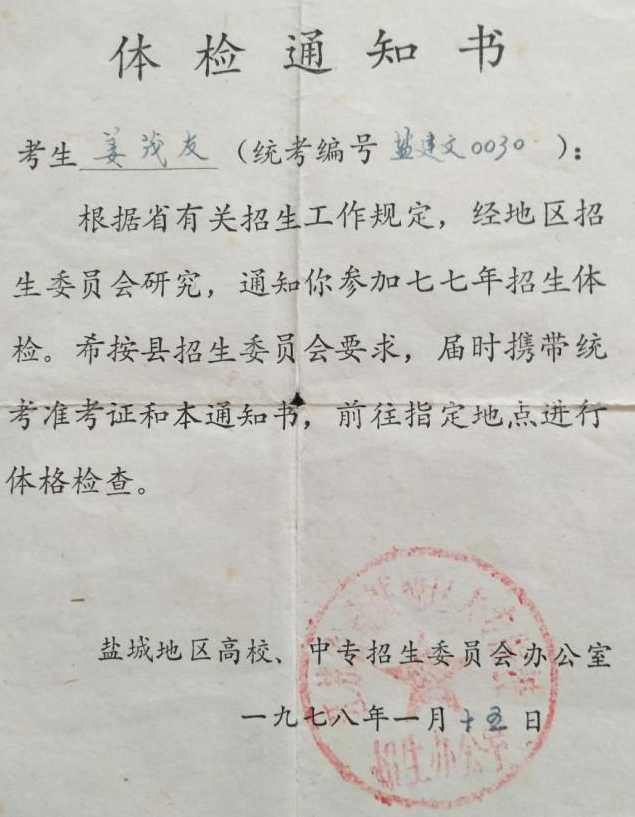 体检通知书
考生 姜茂友 （统考编号 盐建文0030 ）：
根据省有关招生工作规定，经地区招
生委员会研究，通知你参加七七年招生体
检。希按县招生委员会要求，届时携带统
考准考证和本通知书，前往指定地点进行
体格检查。
盐城地区高校、中专招生委员会办公室
一九七八年一月十五日
招生办公室